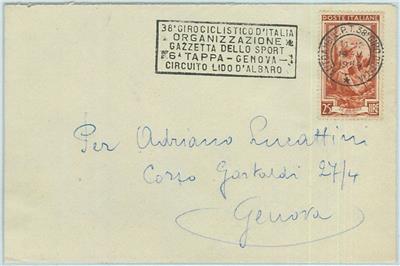 38º GIROCICLISTICO D'ITALIA
ORGANIZZAZIONE
GAZZETTA DELLO SPORT
6ª TAPPA - GENOVA -
CIRCUITO LIDO D'ALBARO
POSTE ITALIANE
25 LIRE
Per Adriano Lucattini
Corso Gastaldi 27/4
Genova